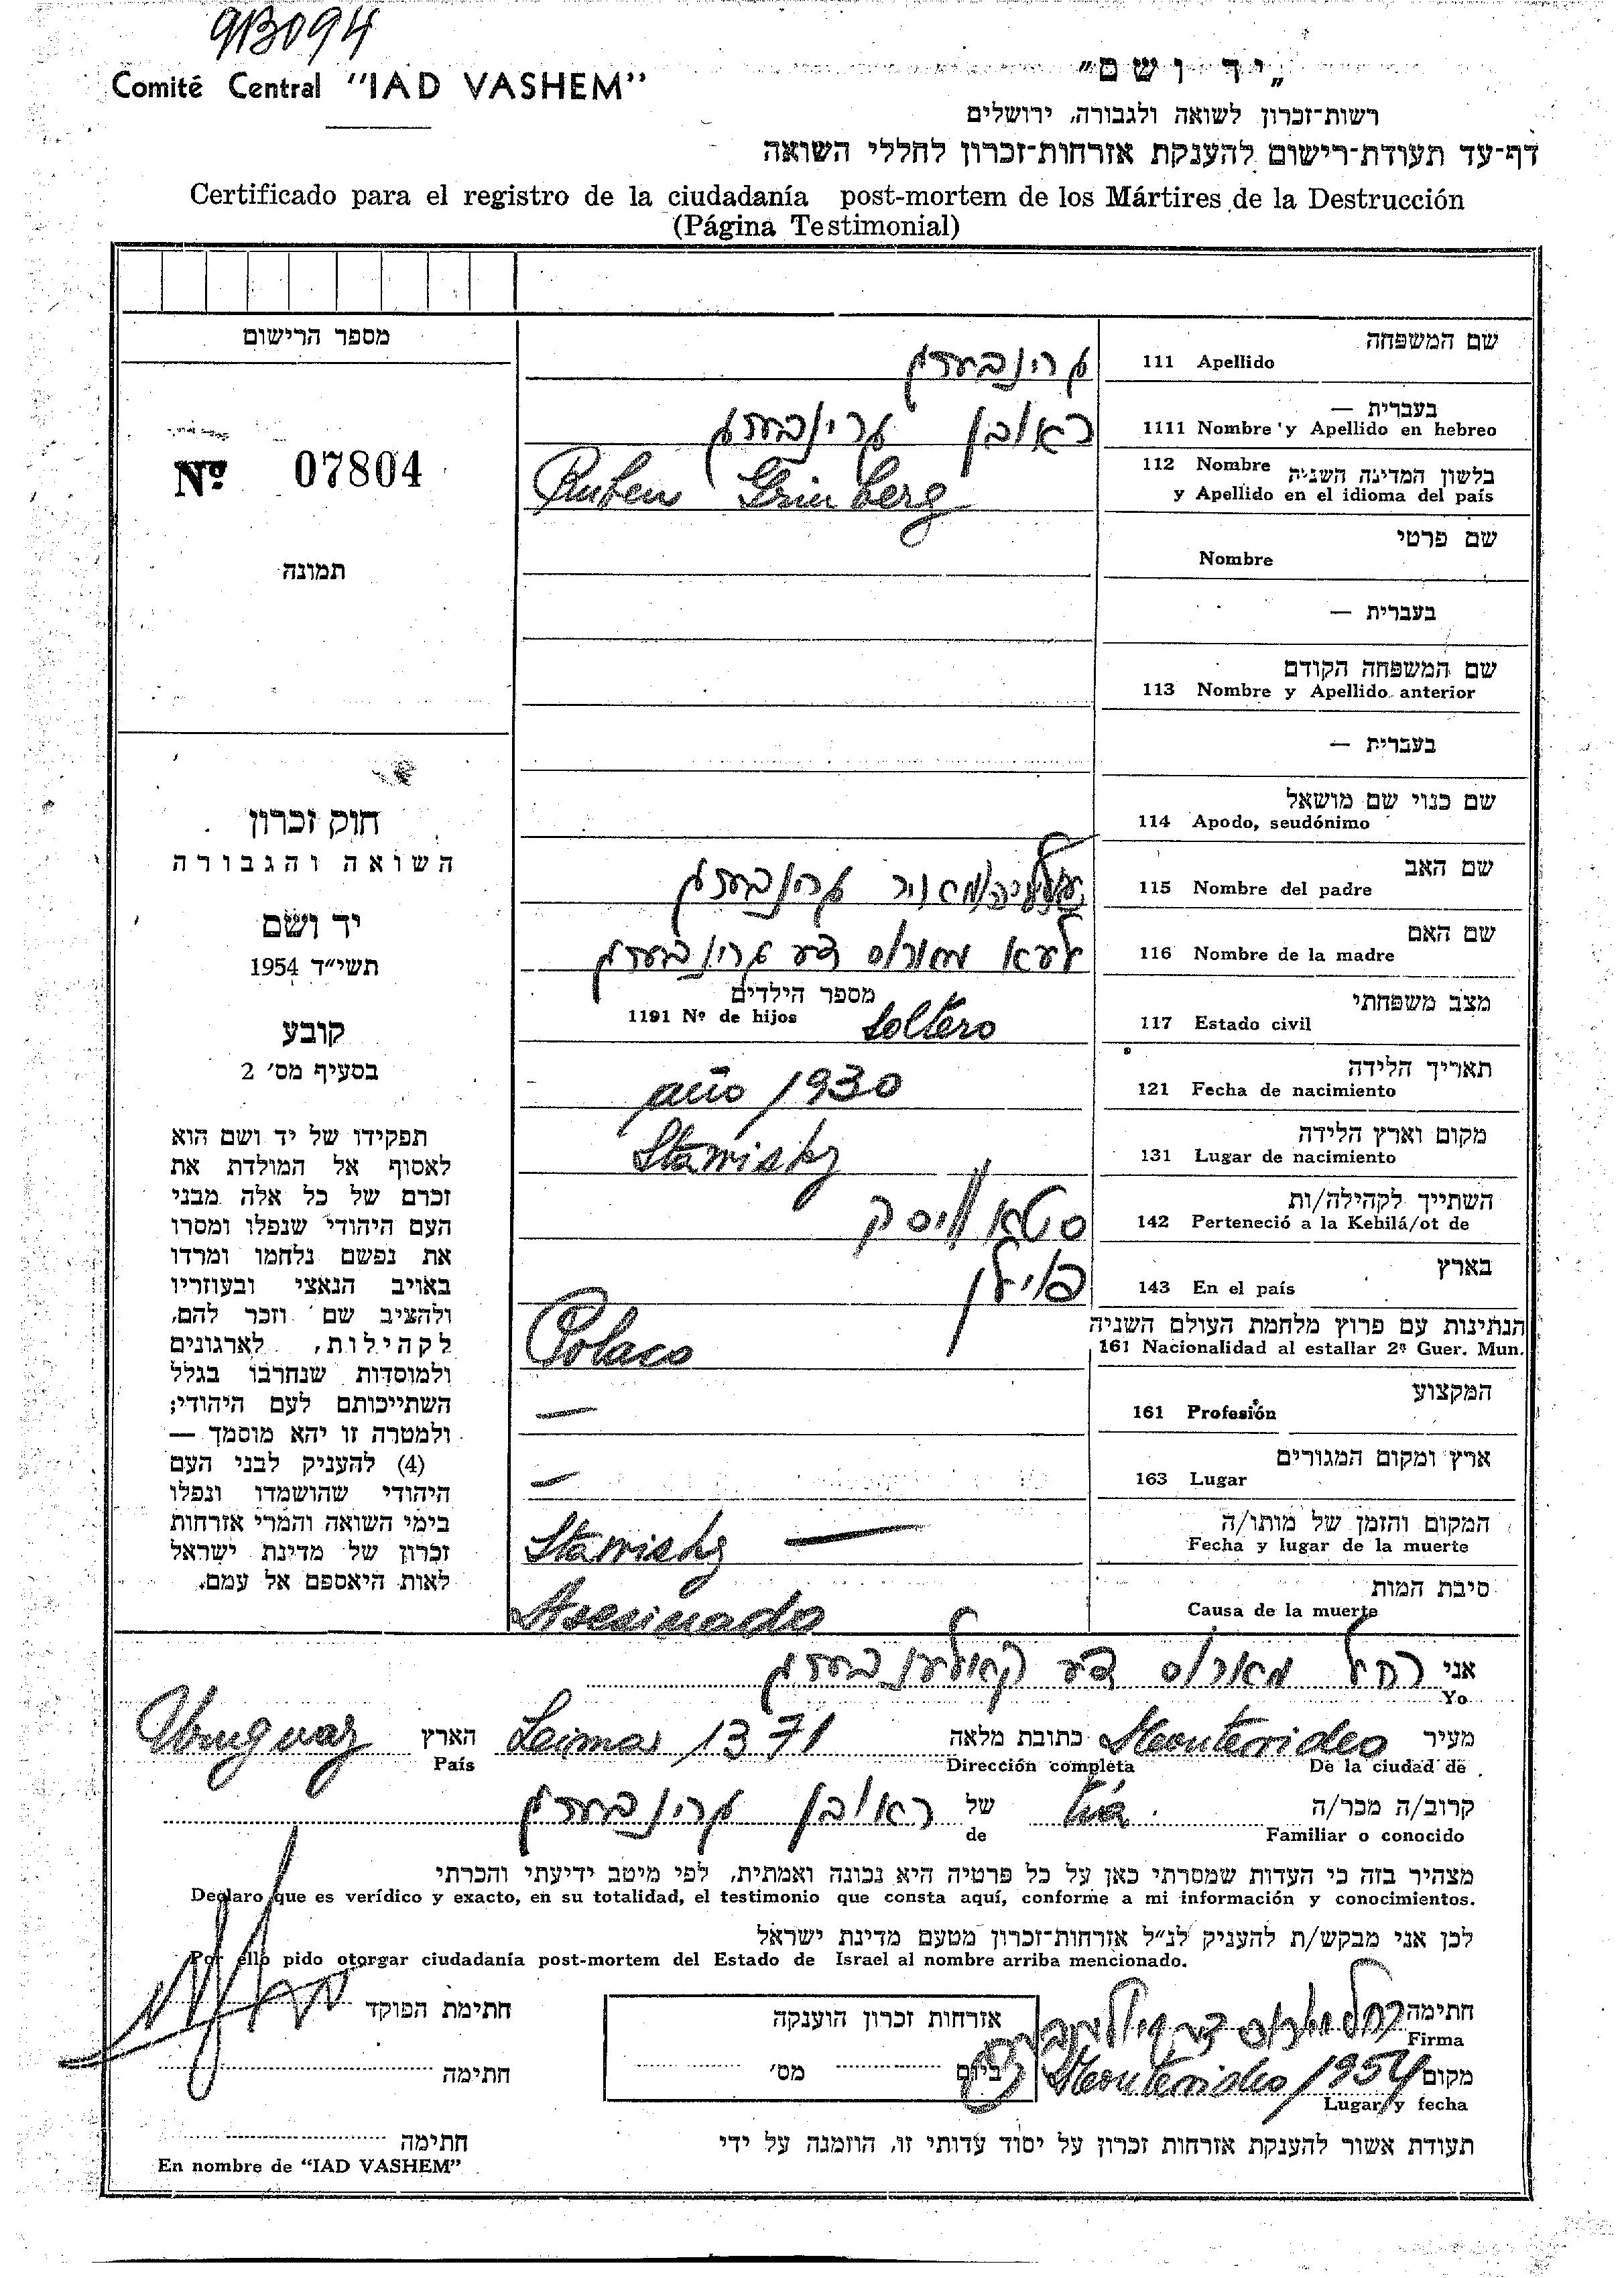 913094
Comité Central "IAD VASHEM"
"יד ושם"
רשות־זכרון לשואה ולגבורה, ירושלים
דף־עד תעודת־רישום להענקת אזרחות־זכרון לחללי השואה
Certificado para el registro de la ciudadanía post-mortem de los Mártires de la Destrucción
(Página Testimonial)
מספר הרישום
Nº 07804
תמונה
חוק זכרון
השואה והגבורה
יד ושם
תשי״ד 1954
קובע
בסעיף מס׳ 2
תפקידו של יד ושם הוא
לאסוף אל המולדת את
זכרם של כל אלה מבני
העם היהודי שנפלו ומסרו
את נפשם נלחמו ומרדו
באויב הנאצי ובעוזריו
ולהציב שם וזכר להם,
לקהילות, לארגונים
ולמוסדות שנחרבו בגלל
השתייכותם לעם היהודי;
ולמטרה זו יהא מוסמך —
(4) להעניק לבני העם
היהודי שהושמדו ונפלו
בימי השואה והמרי אזרחות
זכרון של מדינת ישראל
לאות היאספם אל עמם.
שם המשפחה
111 Apellido
גרינבערג
בעברית —
1111 Nombre y Apellido en hebreo
ראובן גרינבערג
בלשון המדינה השניה
112 Nombre y Apellido en el idioma del país
Ruben Grinberg
שם פרטי
Nombre
בעברית —
שם המשפחה הקודם
113 Nombre y Apellido anterior
בעברית —
שם כנוי שם מושאל
114 Apodo, seudónimo
שם האב
115 Nombre del padre
גרינבערג
שם האם
116 Nombre de la madre
לעא דע גרינבערג
מצב משפחתי
117 Estado civil
Soltero
מספר הילדים
1191 Nº de hijos
תאריך הלידה
121 Fecha de nacimiento
año 1930
מקום וארץ הלידה
131 Lugar de nacimiento
Stawisky
השתייך לקהילה/ות
142 Perteneció a la Kehilá/ot de
סטאוויסק
בארץ
143 En el país
פוילן
הנתינות עם פרוץ מלחמת העולם השניה
161 Nacionalidad al estallar 2ª Guer. Mun.
Polaco
המקצוע
161 Profesión
—
ארץ ומקום המגורים
163 Lugar
—
המקום והזמן של מותו/ה
Fecha y lugar de la muerte
Stawisky —
סיבת המות
Causa de la muerte
Asesinado
אני רחל מארוס דע
Yo
מעיר Montevideo כתובת מלאה Leimar 1371 הארץ Uruguay
De la ciudad de Dirección completa País
קרוב/ה מכר/ה tía של ראובן גרינבערג
Familiar o conocido de
מצהיר בזה כי העדות שמסרתי כאן על כל פרטיה היא נכונה ואמתית, לפי מיטב ידיעתי והכרתי
Declaro que es verídico y exacto, en su totalidad, el testimonio que consta aquí, conforme a mi información y conocimientos.
לכן אני מבקש/ת להעניק לנ״ל אזרחות־זכרון מטעם מדינת ישראל
Por ello pido otorgar ciudadanía post-mortem del Estado de Israel al nombre arriba mencionado.
חתימה
Firma
אזרחות זכרון הוענקה
ביום מס׳
חתימת הפוקד
חתימה
מקום Montevideo 1954
Lugar y fecha
תעודת אשור להענקת אזרחות זכרון על יסוד עדותי זו, הוזמנה על ידי
חתימה
En nombre de "IAD VASHEM"